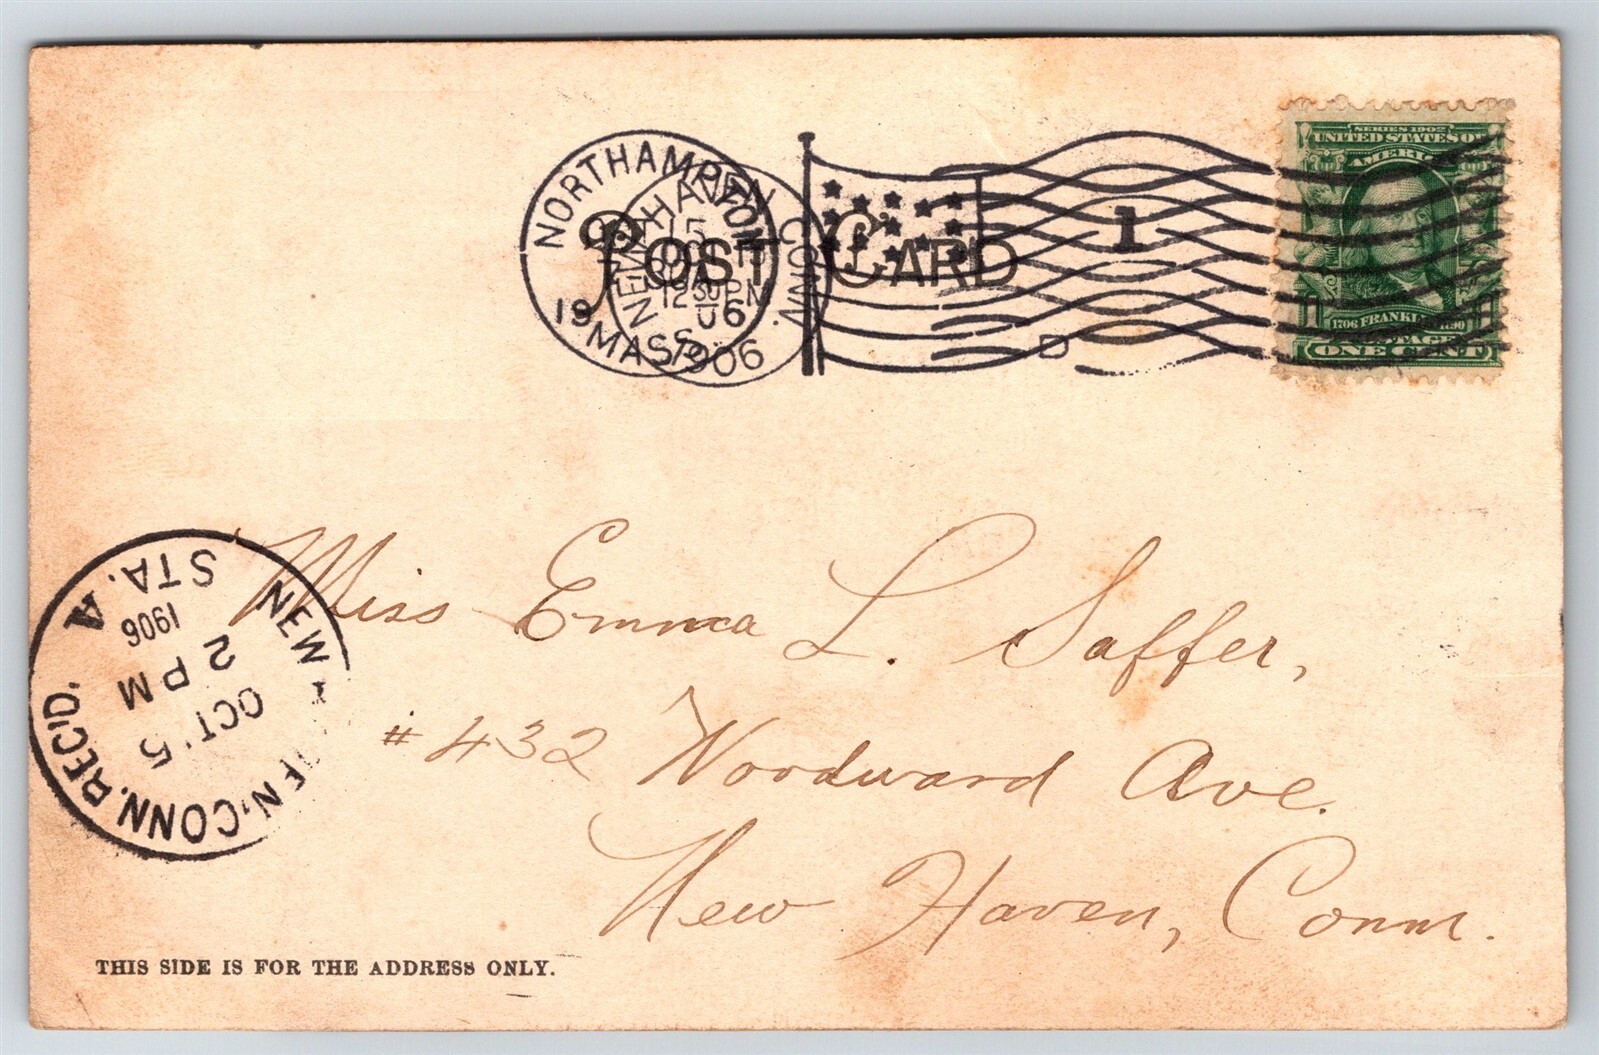 NORTHAMPTON
19 MASS.
06
NEW HAVEN CONN.
12 30 PM
1906
POST CARD
1
D
SERIES 1902
UNITED STATES OF
AMERICA
1706 FRANKLIN 1790
POSTAGE
1 1
ONE CENT
Miss Emma L. Saffer,
#432 Woodward Ave.
New Haven, Conn.
NEW HAVEN, CONN. REC'D.
STA. A
OCT 5
2 PM
1906
THIS SIDE IS FOR THE ADDRESS ONLY.